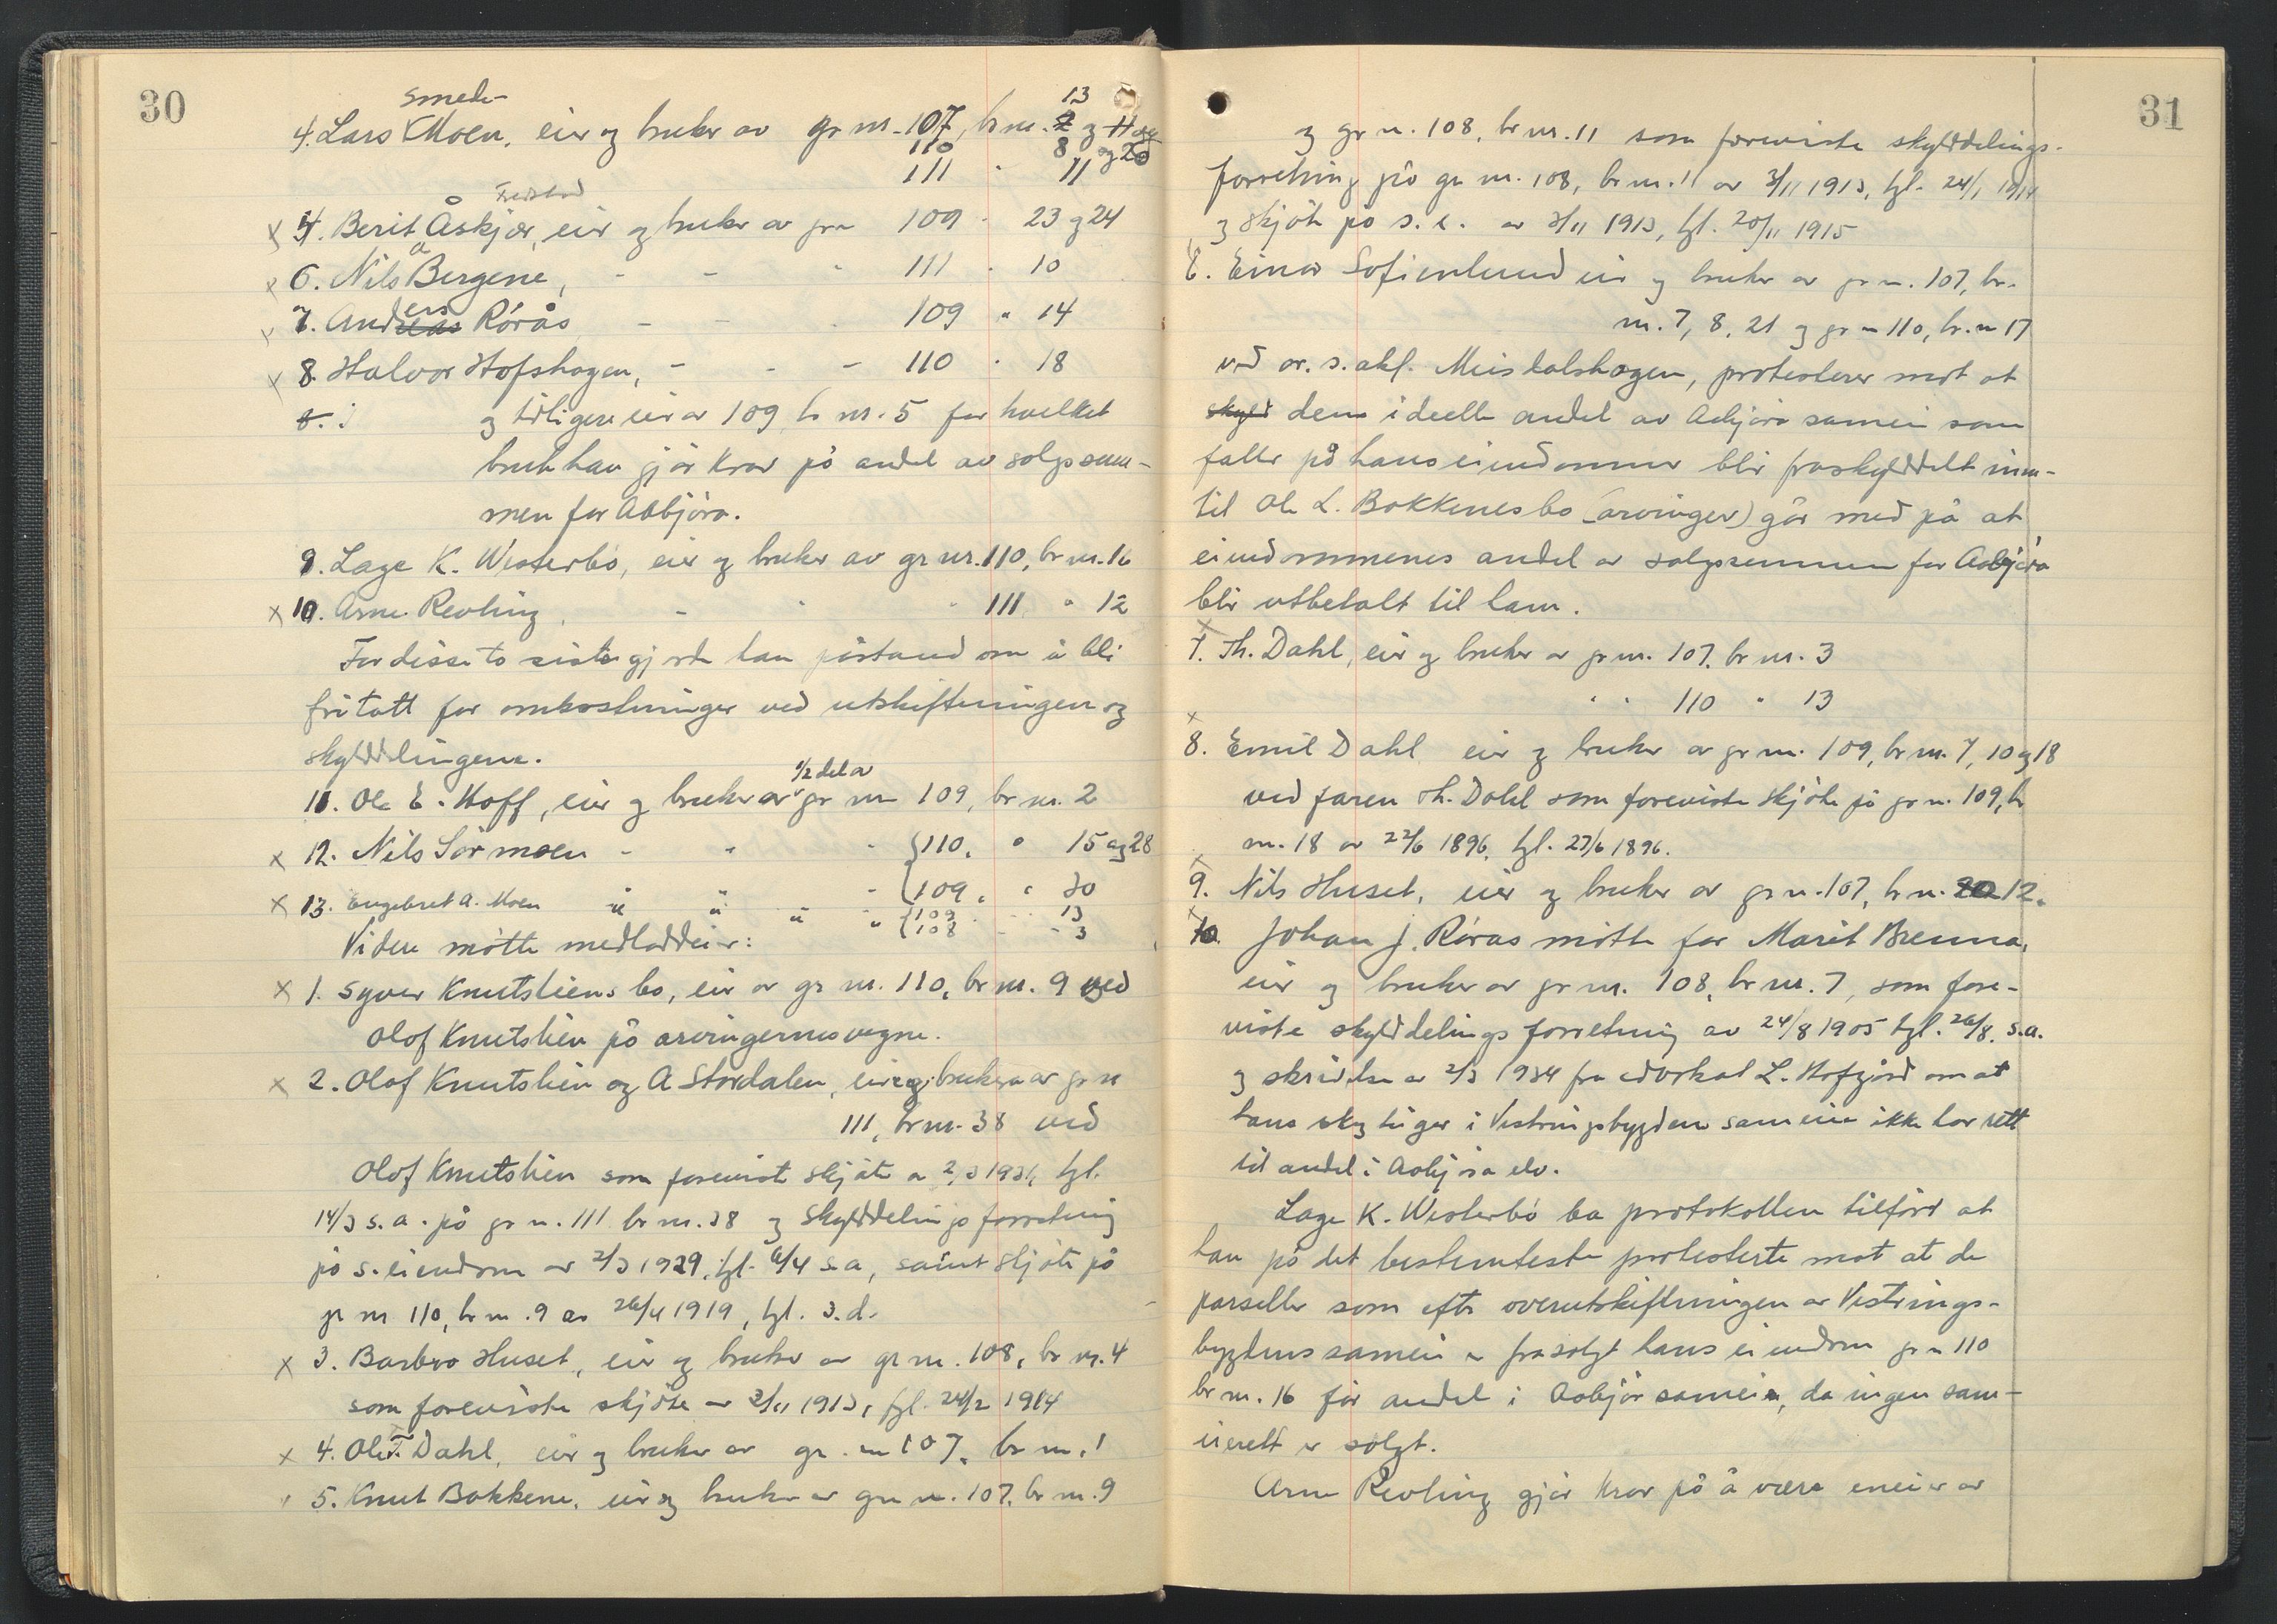 30
smed-
13
4. Lars Moen, eier og bruker av gr nr. 107, br nr. 2 og 11 og
110 8 og 20
111 " 11
Fredstad
x 5. Berit Åskjær, eier og bruker av gr n 109 " 23 og 24
x 6. Nils Bergene, - - " 111 " 10
x 7. Anders Rörås - - " 109 " 14
x 8. Halvor Hofshagen, - - - 110 " 18
og tidligere eier av 109 br nr. 5 for hvilket
bruk han gjör krav på andel av salgssum-
men for Aabjöra.
9. Lage K. Westerbö, eier og bruker av gr nr. 110, br nr. 16
x 10. Arne Revling, - " " 111 " 12
For disse to siste gjorde han påstand om å bli
fritatt for omkostninger ved utskiftningen og
skylddelingene.
1/2 del av
11. Ole E. Hoff, eier og bruker av gr nr 109, br nr. 2
x 12. Nils Sörmoen - " - {110, " 15 og 28
{109, " 30
x 13. Engebret A. Moen " " " " {109 " 13
{108 - - 3
Videre mötte medloddeier:
x 1. Syver Knutsliens bo, eier av gr nr. 110, br nr. 9 ved
Olof Knutslien på arvingernes vegne.
x 2. Olof Knutslien og A Stordalen, eier og brukere av gr n
111, br nr. 38 ved
Olof Knutslien som foreviste skjöte av 2/3 1931, tgl.
14/3 s.a. på gr n. 111 br nr. 38 og skylddelingsforretning
på s. eiendom av 2/3 1929, tgl. 6/4 s.a, samt skjöte på
gr nr 110, br nr. 9 av 26/4 1919, tgl. s.d.
x 3. Barbro Huset, eier og bruker av gr nr. 108, br nr. 4
som foreviste skjöte av 3/11 1913, tgl. 24/2 1914
x 4. Ole T. Dahl, eier og bruker av gr. nr 107, br nr. 1
5. Knut Bakkene, eier og bruker av gr n. 107, br nr. 9
31
og gr n. 108, br nr. 11 som foreviste skylddelings-
forretning på gr nr. 108, br nr. 11 av 3/11 1913, tgl. 24/1 1914
og skjöte på s. e. av 3/11 1913, tgl. 20/11 1915
6. Einar Sofienlund eier og bruker av gr n. 107, br.
nr. 7, 8, 21 og gr n 110, br. n 17
ved or. s. akf. Meisdalshagen, protesterer mot at
skyld dens ideelle andel av Aabjöra sameie som
faller på hans eiendommer blir fraskylddelt inn-
til Ole L. Bakkenes bo (arvinger) går med på at
eiendommenes andel av salgssummen for Aabjöra
blir utbetalt til ham.
x
7. Th. Dahl, eier og bruker av gr nr. 107, br nr. 3
" " 110 " 13
x
8. Emil Dahl eier og bruker av gr nr. 109, br nr. 7, 10 og 18
ved faren Th. Dahl som foreviste skjöte på gr n. 109, br
nr. 18 av 22/6 1896, tgl. 27/6 1896.
x
9. Nils Huset, eier og bruker av gr n. 107, br n. 20 12.
x
10. Johan J. Röras mötte for Marit Brenna,
eier og bruker av gr nr. 108, br nr. 7, som fore-
viste skylddelingsforretning av 24/8 1905 tgl. 26/8 s.a.
og skrivelse av 2/3 1934 fra advokat L. Hofgård om at
hans skogteiger i Vestringsbygdens sameie ikke har rett
til andel i Aabjöra elv.
Lage K. Westerbö ba protokollen tilfört at
han på det bestemteste protesterte mot at de
parseller som efter overutskiftningen av Vestrings-
bygdens sameie er frasolgt hans eiendom gr n 110
br nr. 16 får andel i Aabjör sameie, da ingen sam-
eierett er solgt.
Arne Revling gjör krav på å være eneier av